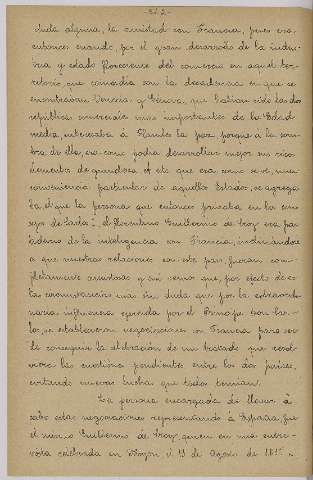 -212-
duda alguna, la amistad con Francia, pues era
entonces cuando, por el gran desarrollo de la indus-
tria y estado floreciente del comercio en aquel te-
rritorio, que coincidia con la decadencia en que se
encontraban Venecia y Génova, que habian sido las dos
repúblicas comerciales mas importantes de la Edad
media, interesaba á Flandes la paz, porque a la som-
bra de ella, era como podia desarrollar mejor sus
elementos de grandeza. A esto que era como se ve, una
conveniencia particular de aquellos Estados, se agrega-
ba, el que la persona que entonces privaba en los con-
sejos de Carlos, el florentino Guillermo de Croy era par-
tidario de la inteligencia con Francia, inclinándose
a que nuestras relaciones con este pais fueran com-
pletamente amistosas y asi vemos que, por efecto de es-
tas circunstancias mas sin duda que por la extraordi-
naria influencia ejercida por el Principe don Car-
los, se establecieron negociaciones con Francia para ver
de conseguir la celebración de un tratado que resol-
viera las cuestiones pendientes entre los dos paises,
evitando nuevas luchas que todos temian.
La persona encargada de llevar á
cabo estas negociaciones representando á España, fué
el mismo Guillermo de Croy, quien en una entre-
vista celebrada en Noyon, el 13 de Agosto de